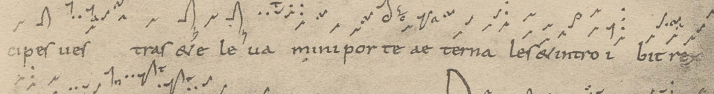 cipes ues tras & e le ua mini por te ae terna les & intro i bit rex